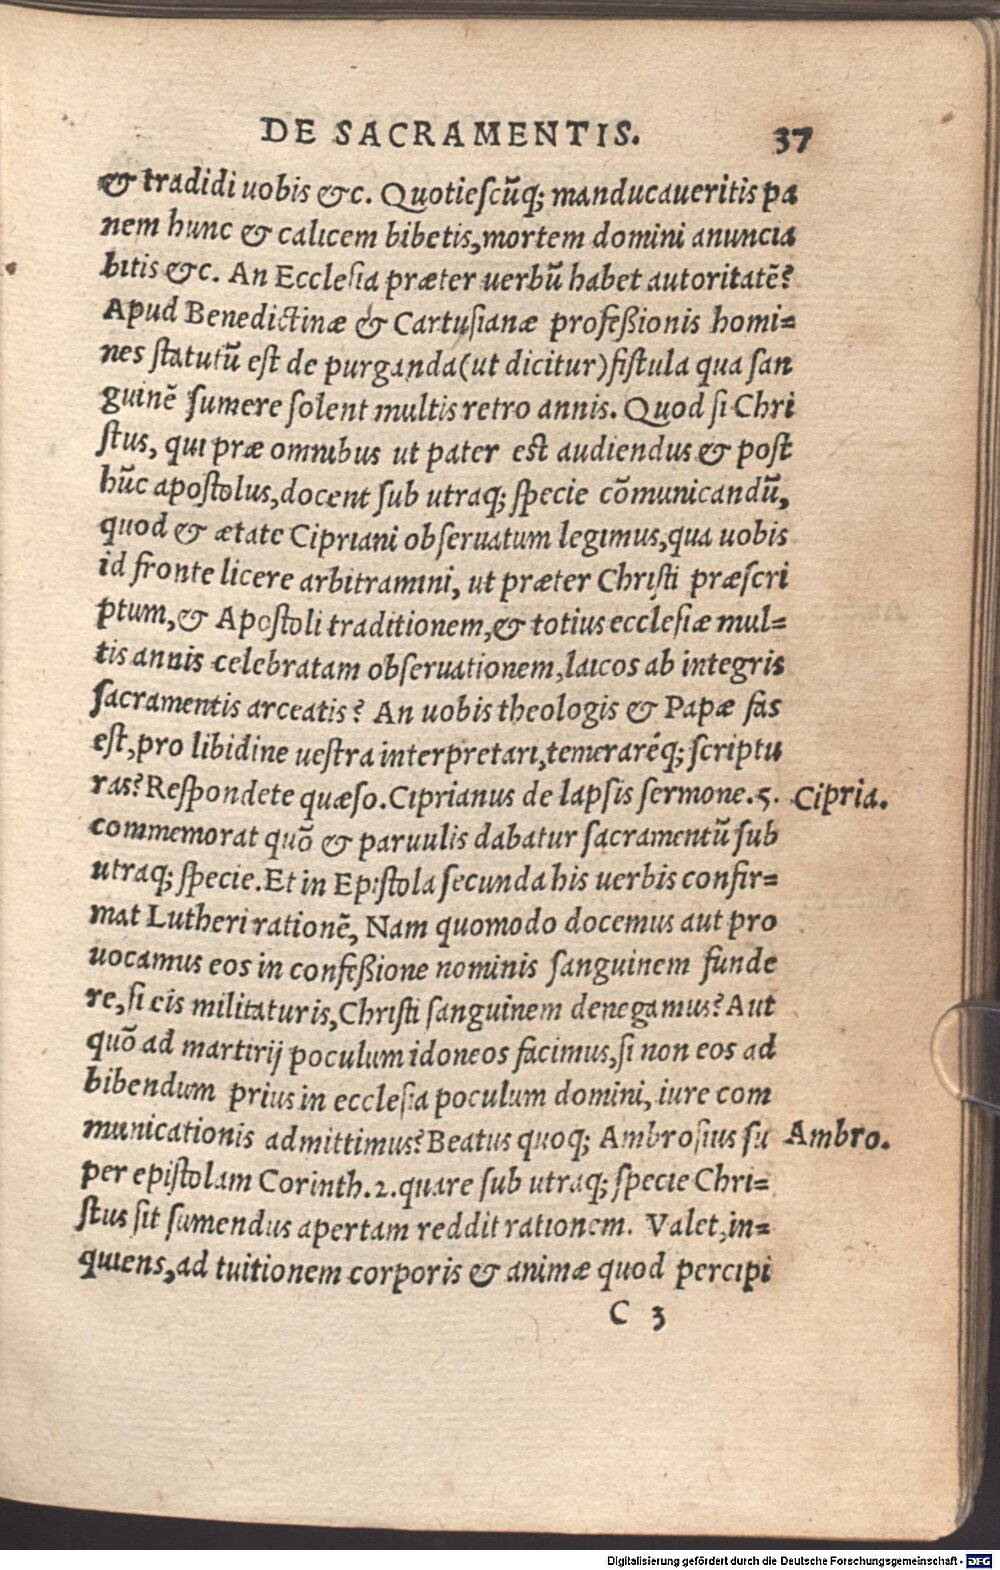 DE SACRAMENTIS. 37
& tradidi uobis &c. Quotieſcũq; manducaueritis pa
nem hunc & calicem bibetis, mortem domini anuncia
bitis &c. An Eccleſia præter uerbũ habet autoritatẽ?
Apud Benedictinæ & Cartuſianæ profeßionis homi=
nes ſtatutũ eſt de purganda (ut dicitur) fiſtula qua ſan
guinẽ ſumere ſolent multis retro annis. Quod ſi Chri
ſtus, qui præ omnibus ut pater eſt audiendus & poſt
hũc apoſtolus, docent ſub utraq; ſpecie cõmunicandũ,
quod & ætate Cipriani obſeruatum legimus, qua uobis
id fronte licere arbitramini, ut præter Chriſti præſcri
ptum, & Apoſtoli traditionem, & totius eccleſiæ mul=
tis annis celebratam obſeruationem, laicos ab integris
ſacramentis arceatis? An uobis theologis & Papæ fas
eſt, pro libidine ueſtra interpretari, temeraréq; ſcriptu
ras? Reſpondete quæſo. Ciprianus de lapſis ſermone. 5. Cipria.
commemorat quõ & paruulis dabatur ſacramentũ ſub
utraq; ſpecie. Et in Epiſtola ſecunda his uerbis confir=
mat Lutheri rationẽ, Nam quomodo docemus aut pro
uocamus eos in confeßione nominis ſanguinem funde
re, ſi eis militaturis, Chriſti ſanguinem denegamus? Aut
quõ ad martirij poculum idoneos facimus, ſi non eos ad
bibendum prius in eccleſia poculum domini, iure com
municationis admittimus? Beatus quoq; Ambroſius ſu Ambro.
per epiſtolam Corinth. 2. quare ſub utraq; ſpecie Chri=
ſtus ſit ſumendus apertam reddit rationem. Valet, in=
quiens, ad tuitionem corporis & animæ quod percipi
C 3
Digitalisierung gefördert durch die Deutsche Forschungsgemeinschaft - DFG